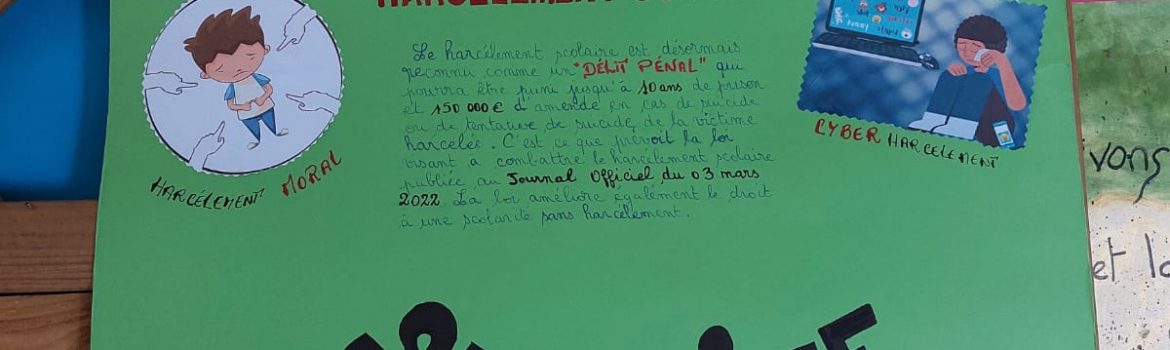 HARCÈLEMENT
Le harcèlement scolaire est désormais
reconnu comme un "DÉLIT PÉNAL" qui
pourra être puni jusqu'à 10 ans de prison
et 150 000 € d'amende en cas de suicide
ou de tentative de suicide de la victime
harcelée. C'est ce que prévoit la loi
visant à combattre le harcèlement scolaire
publiée au Journal Officiel du 03 mars
2022. La loi améliore également le droit
à une scolarité sans harcèlement.
HARCÉLEMENT MORAL
CYBER HARCELEMENT
vons
et la